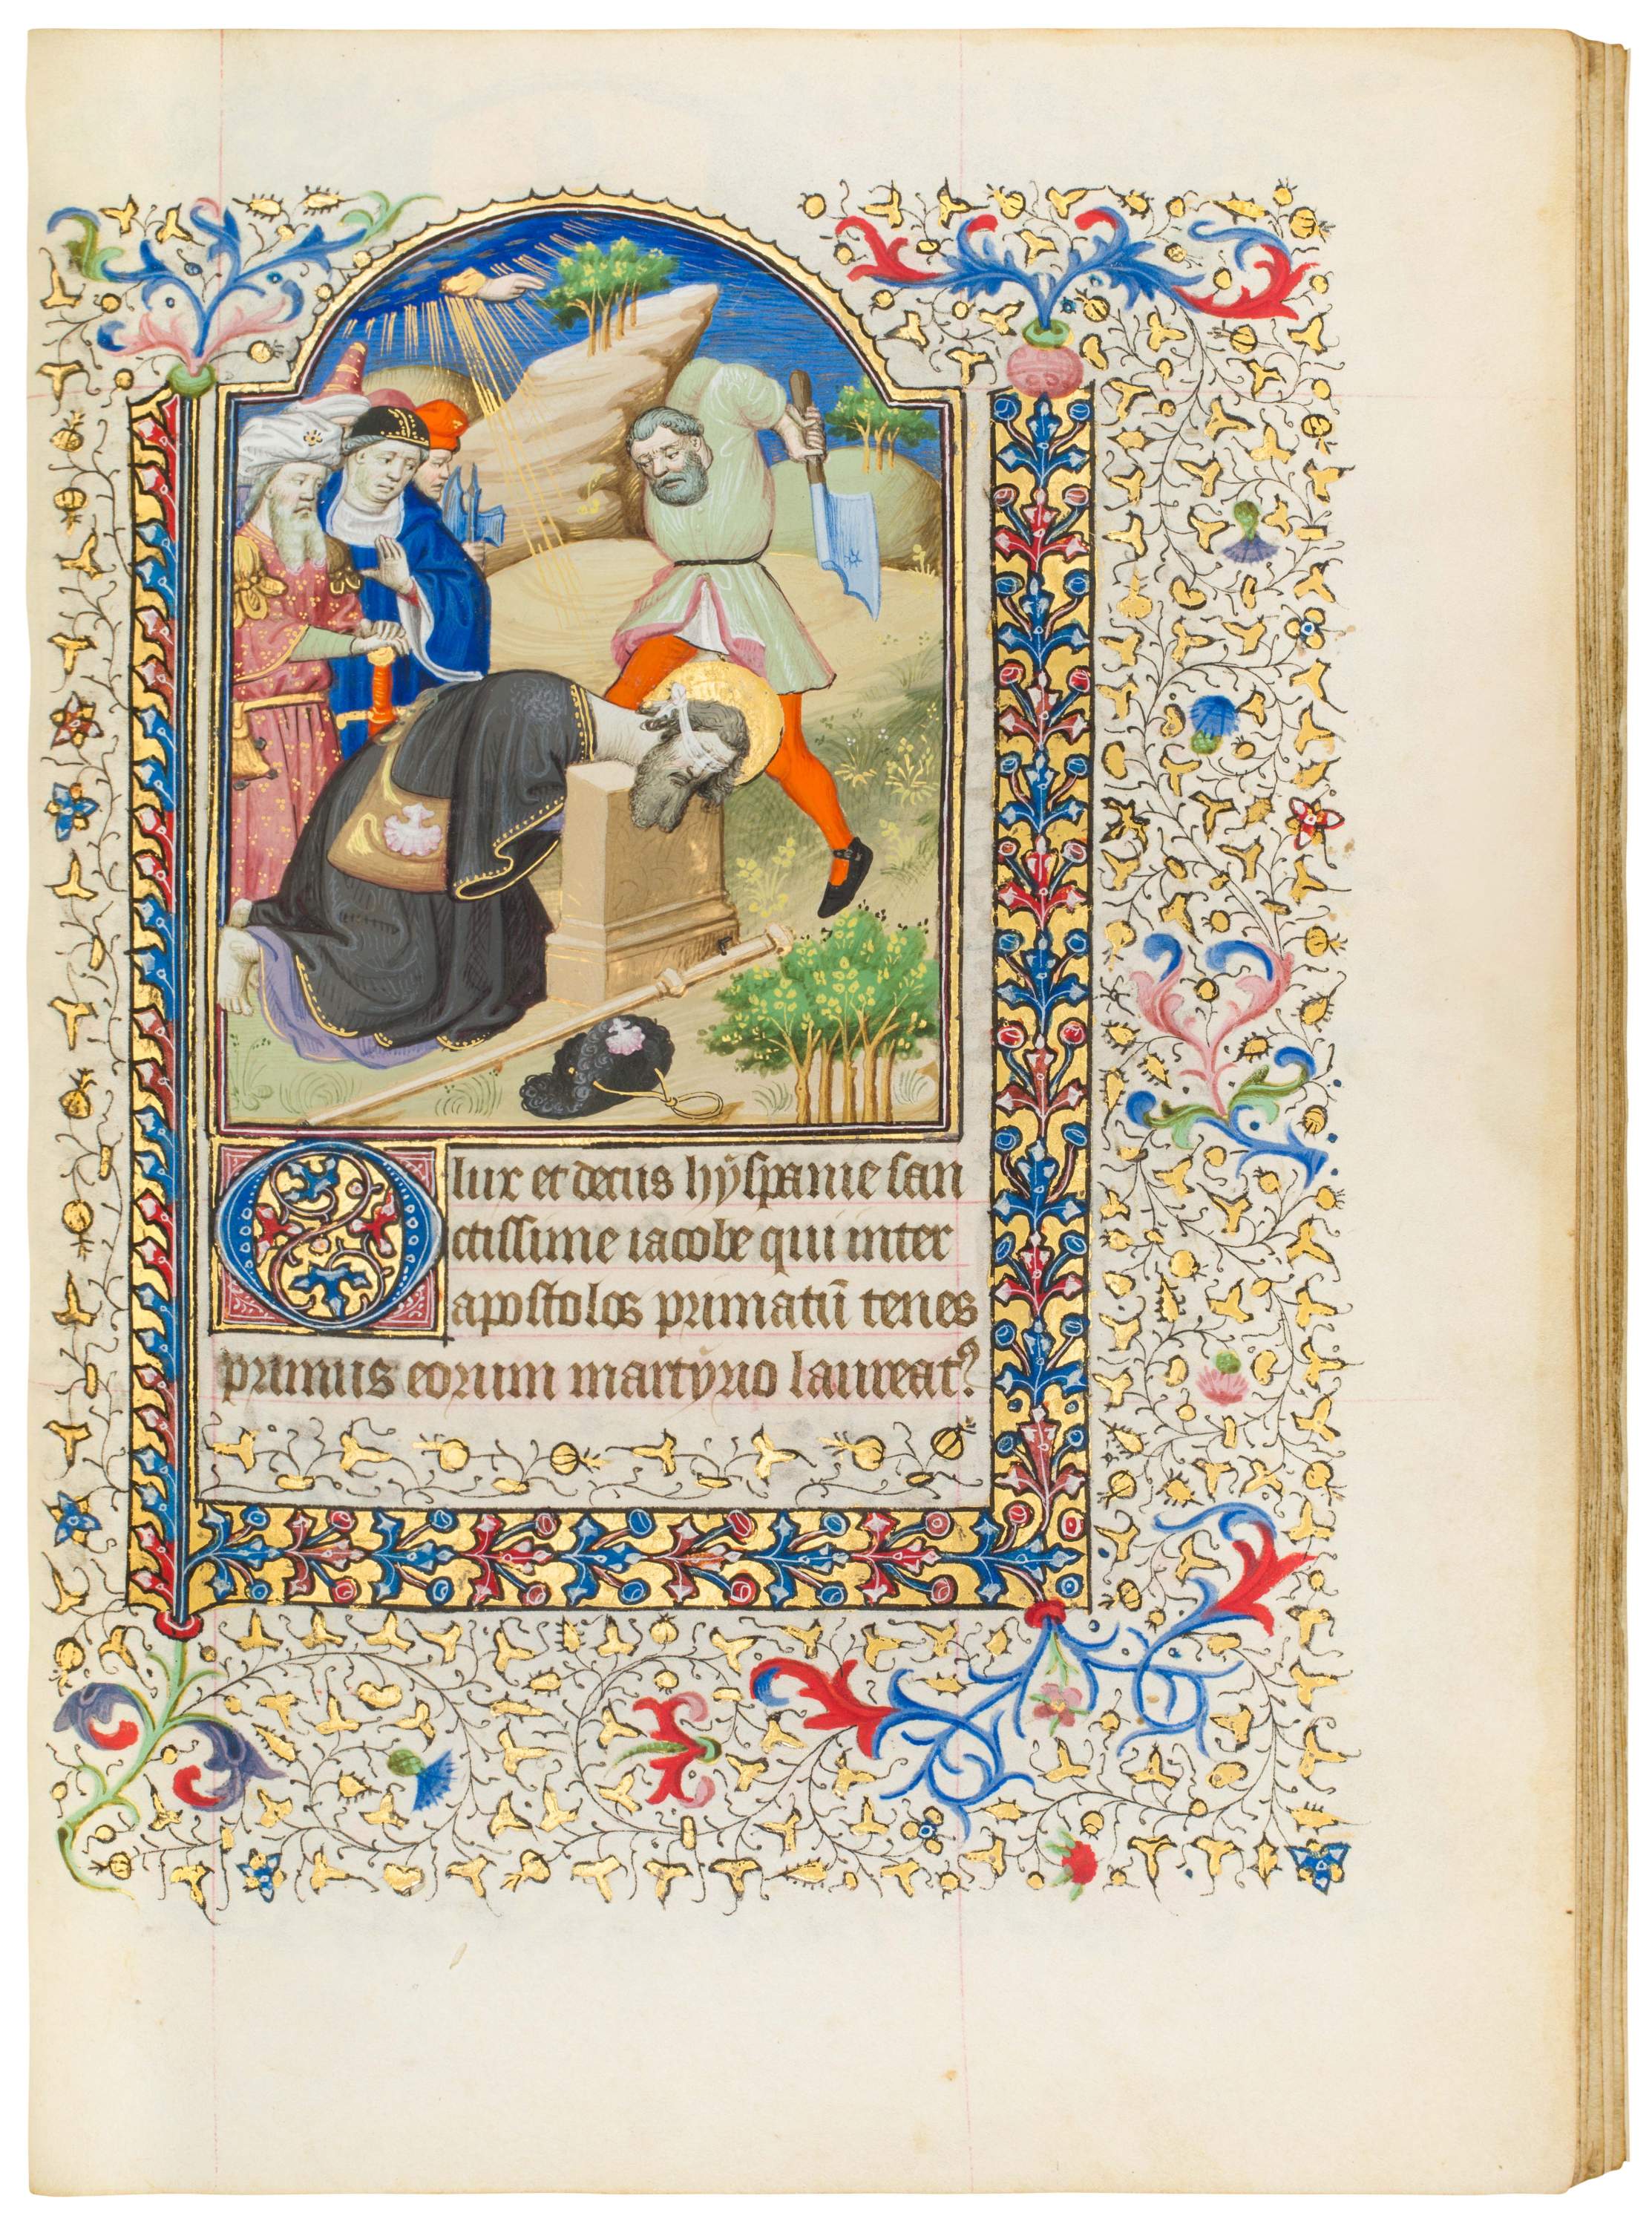 O lux et decus hyspanie san
ctissime iacobe qui inter
apostolos primatū tenes
primus eorum martyrio laureatꝰ